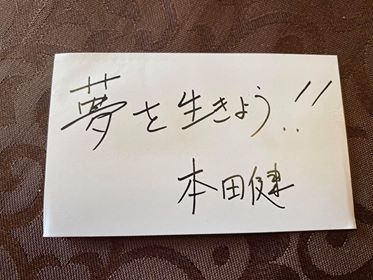 夢を生きよう!!
本田健